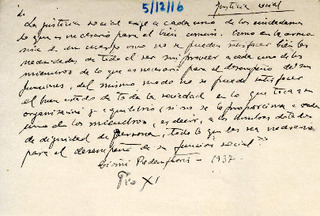 5/12/16
justicia social
"La justicia social exige a cada uno de los ciudadanos
lo que es necesario para el bien común. Como en la armo-
nía de un cuerpo no se puede satisfacer bien las
necesidades, de todo el ser sin proveer a cada uno de los
miembros de lo que es necesario para el desempeño de sus
funciones, del mismo modo no se puede satisfacer
el buen estado de toda la sociedad en lo que toca a su
organización y equilibrio, si no se le proporciona a cada
uno de los miembros, es decir, a los hombres dotados
de dignidad de persona, todo lo que les sea necesario
para el desempeño de su función social"
Divini Redemptoris - 1937.
Pío XI